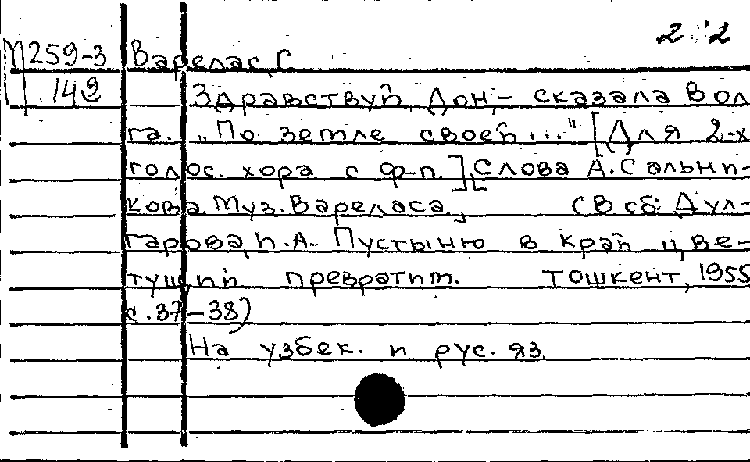 2 2
М259-3 Варелас, Г.
149
Здравствуй, Дон,- сказала Вол
га. "По земле своей..." [Для 2-х
голос. хора с ф-п.] Слова А.Сальни-
кова. Муз. Вареласа. (В сб: Дул-
гарова, П.А. Пустыню в край цве-
тущий превратим. Тошкент, 1955
с.37-38)
На узбек. и рус. яз.